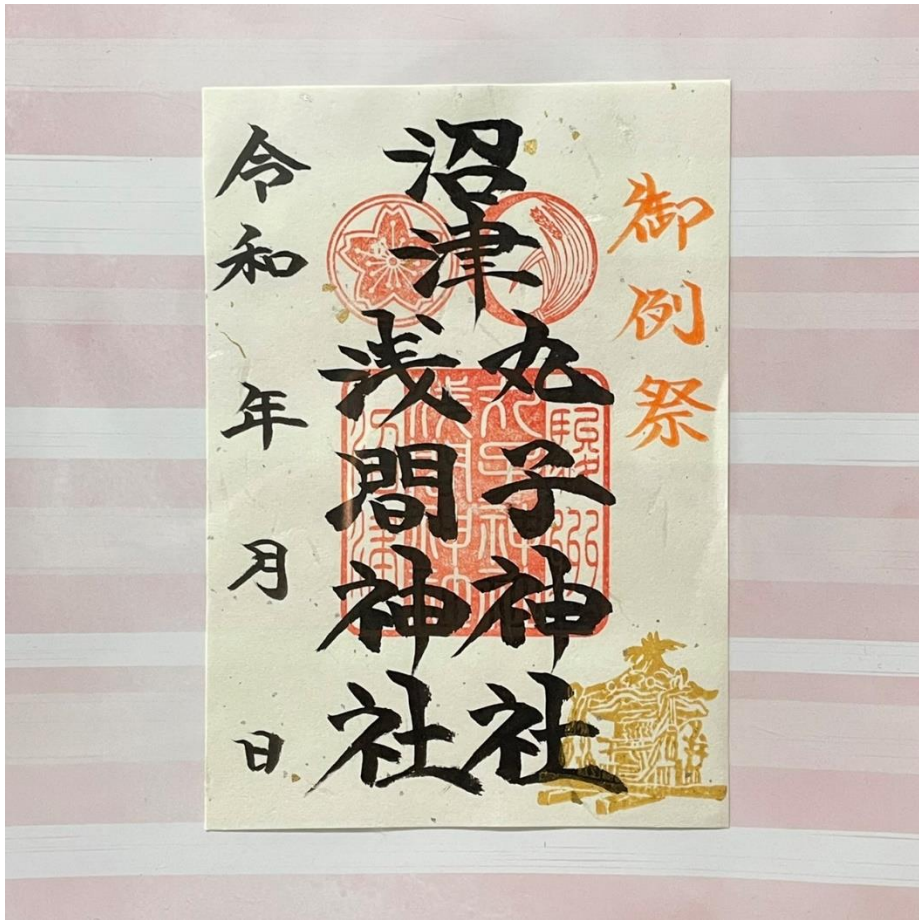 御例祭
沼津
丸子神社
浅間神社
令和 年 月 日